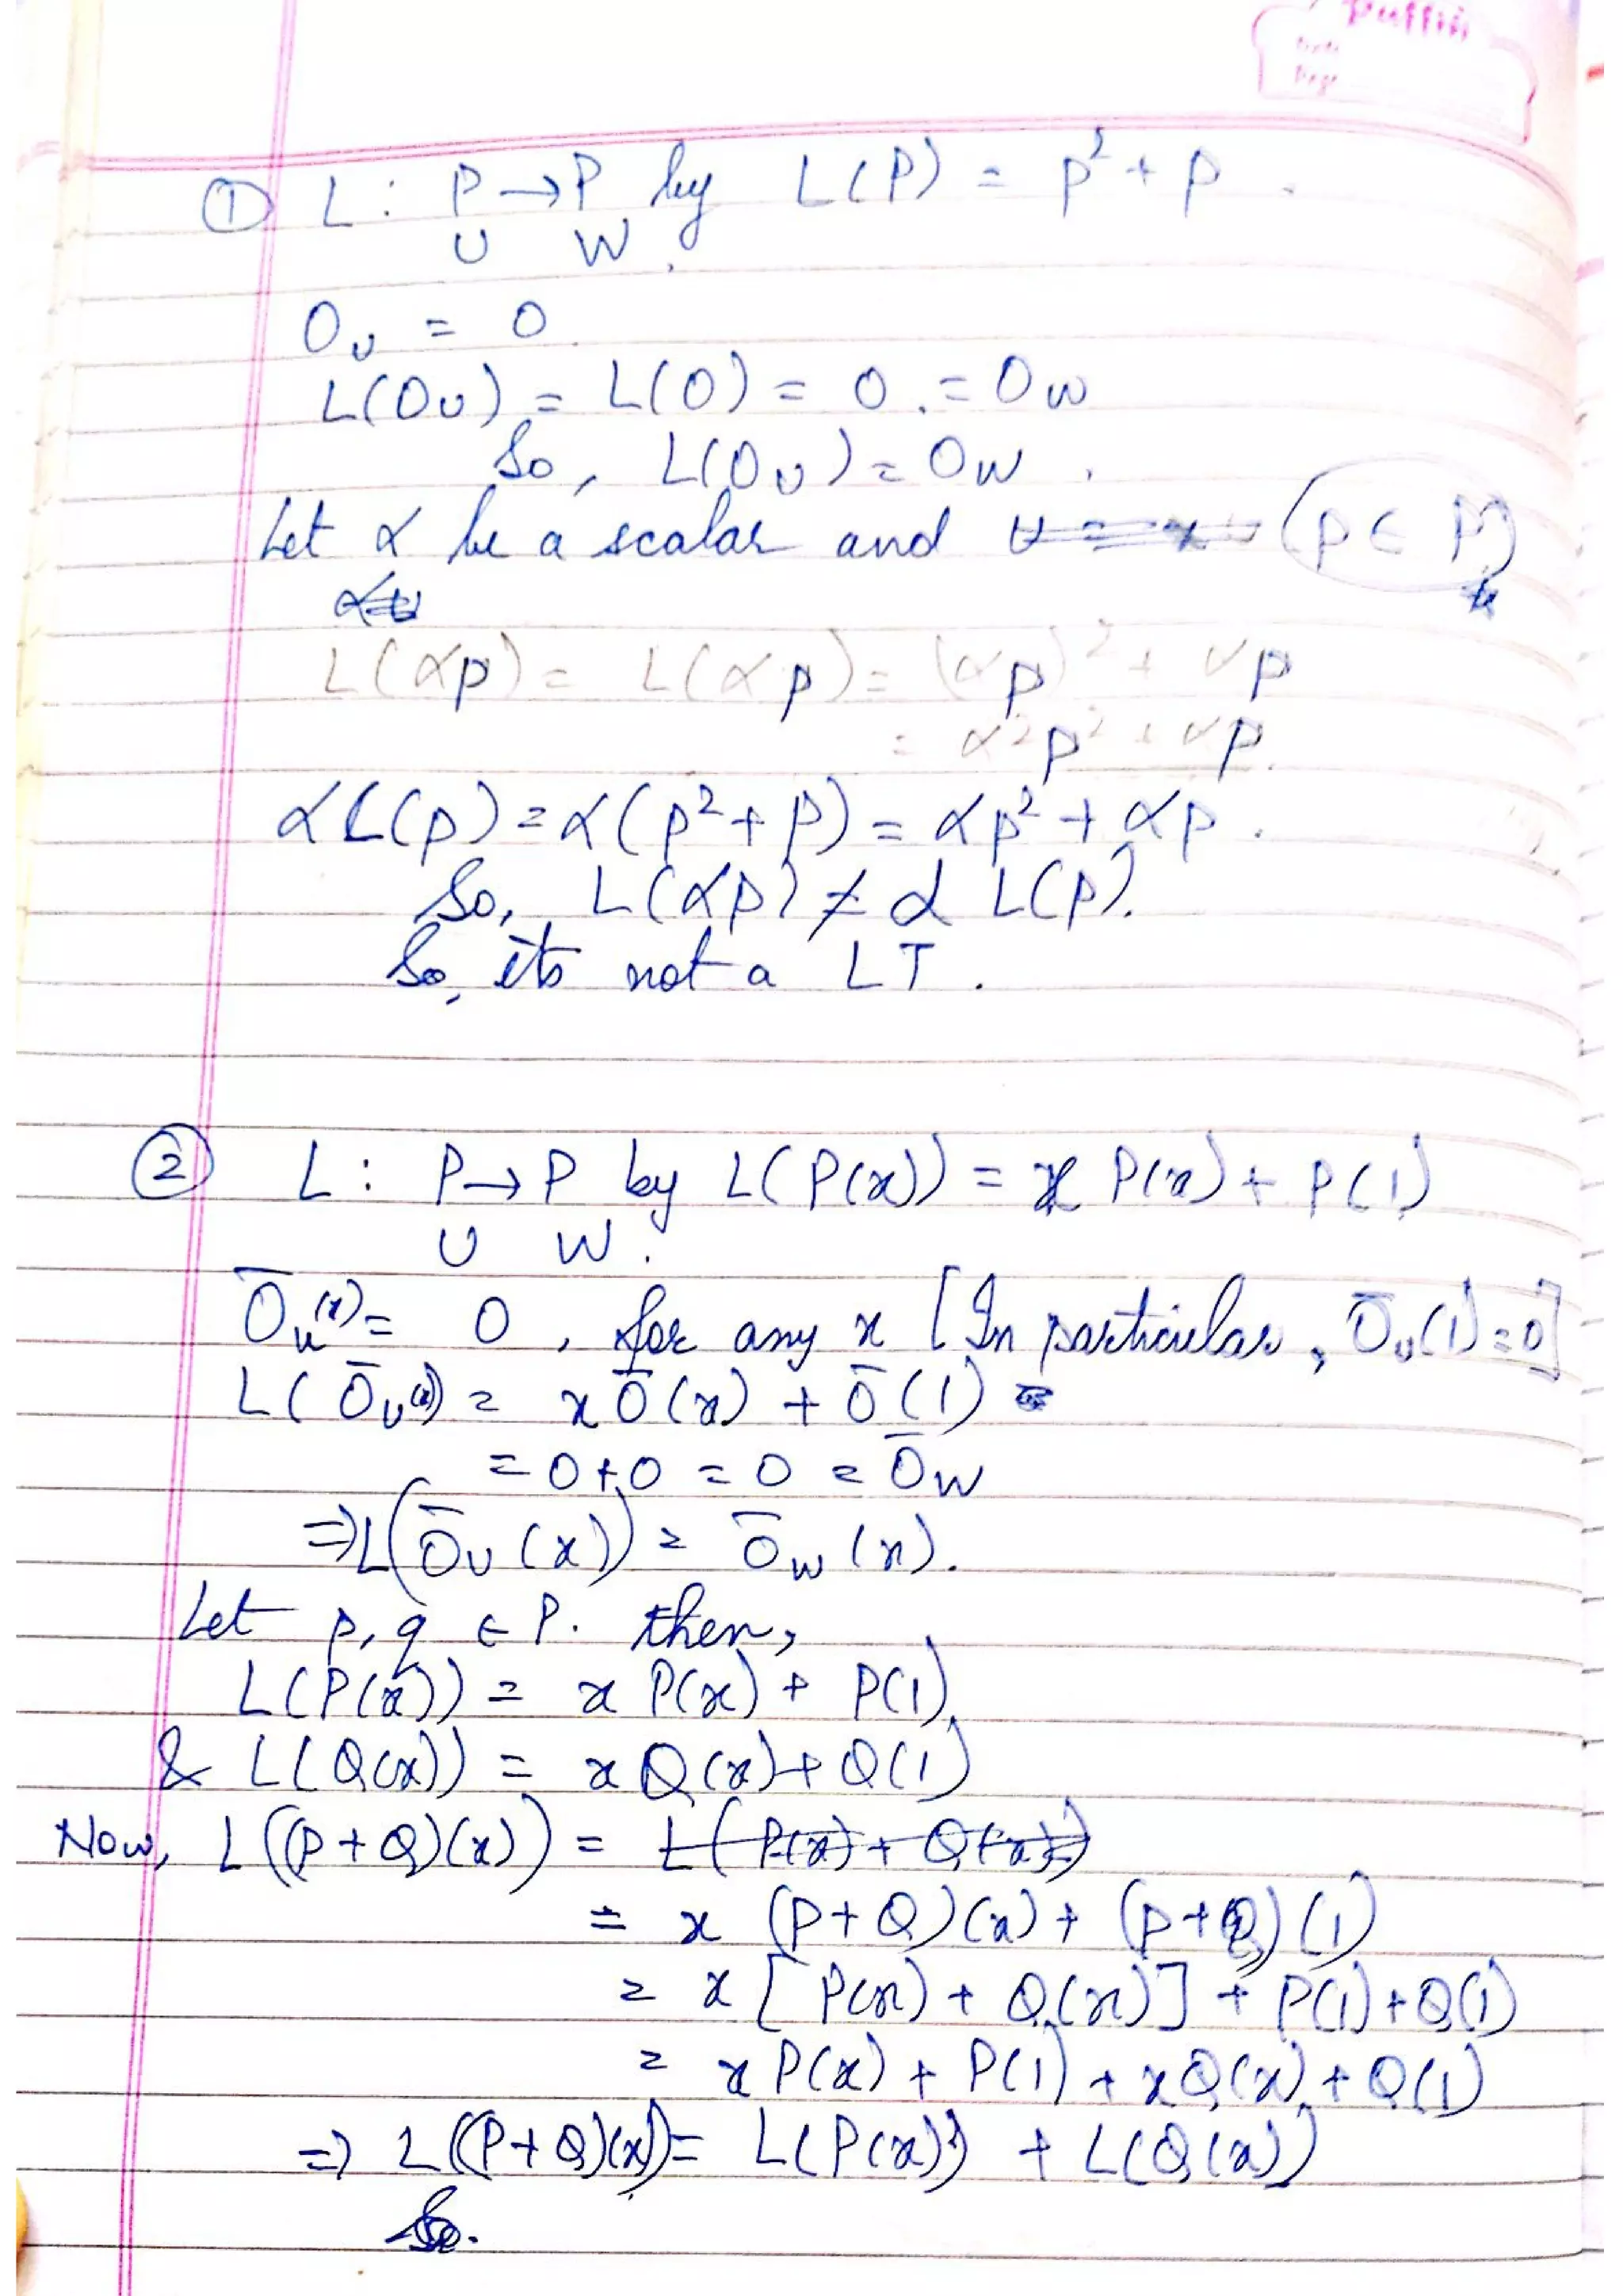 Puffin
Date
Page
① L : P → P by L(P) = p² + p .
U W .
0ᵤ = 0
L(0ᵤ) = L(0) = 0 . = 0w
So, L(0ᵤ) = 0w .
Let α be a scalar and (p ∈ P)
L(αp) = L(αp) = (αp)² + αp
= α²p² + αp.
αL(p) = α(p² + p) = αp² + αp .
So, L(αp) ≠ α L(p).
So, its not a LT .
② L : P → P by L(P(x)) = x P(x) + P(1)
U W .
0̄ᵤ(x) = 0 , for any x [In particular, 0̄ᵤ(1) = 0]
L(0̄ᵤ(x)) = x 0̄(x) + 0̄(1)
= 0 + 0 = 0 = 0̄w
⇒ L(0̄ᵤ(x)) = 0̄w(x).
Let p, q ∈ P. then,
L(P(x)) = x P(x) + P(1)
& L(Q(x)) = x Q(x) + Q(1)
Now, L((P+Q)(x)) = L(P(x) + Q(x))
= x (P+Q)(x) + (P+Q)(1)
= x [P(x) + Q(x)] + P(1) + Q(1)
= x P(x) + P(1) + x Q(x) + Q(1)
⇒ L((P+Q)(x)) = L(P(x)) + L(Q(x))
So.